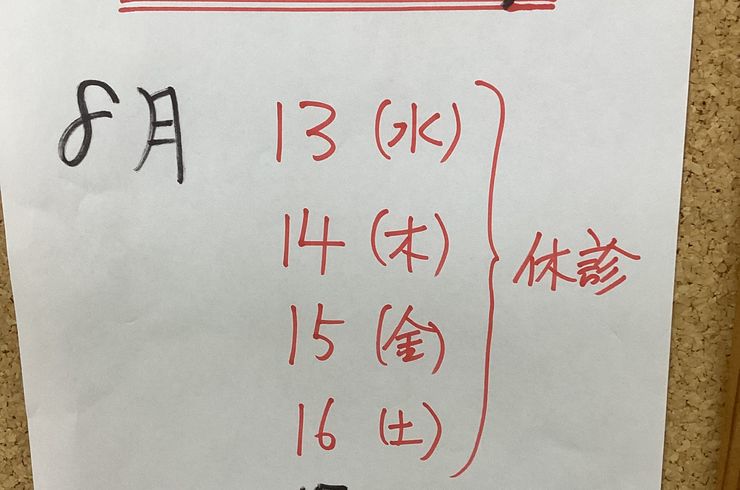 8月 13(水)
14(木)
15(金)
16(土)
休診